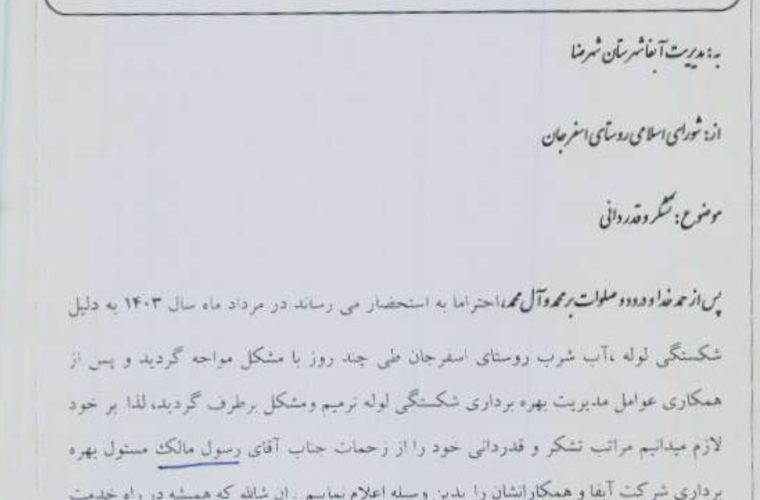 به: مدیریت آبفا شهرستان شهرضا
از: شورای اسلامی روستای اسفرجان
موضوع: تشکر و قدردانی
پس از حمد خدا و درود و صلوات بر محمد و آل محمد،احتراما به استحضار می رساند در مرداد ماه سال ۱۴۰۳ به دلیل
شکستگی لوله ،آب شرب روستای اسفرجان طی چند روز با مشکل مواجه گردید و پس از
همکاری عوامل مدیریت بهره برداری شکستگی لوله ترمیم ومشکل برطرف گردید، لذا بر خود
لازم میدانیم مراتب تشکر و قدردانی خود را از زحمات جناب آقای رسول مالک مسئول بهره
برداری شرکت آبفا و همکارانشان را بدین وسیله اعلام نماییم . ان شالله که همیشه در راه خدمت